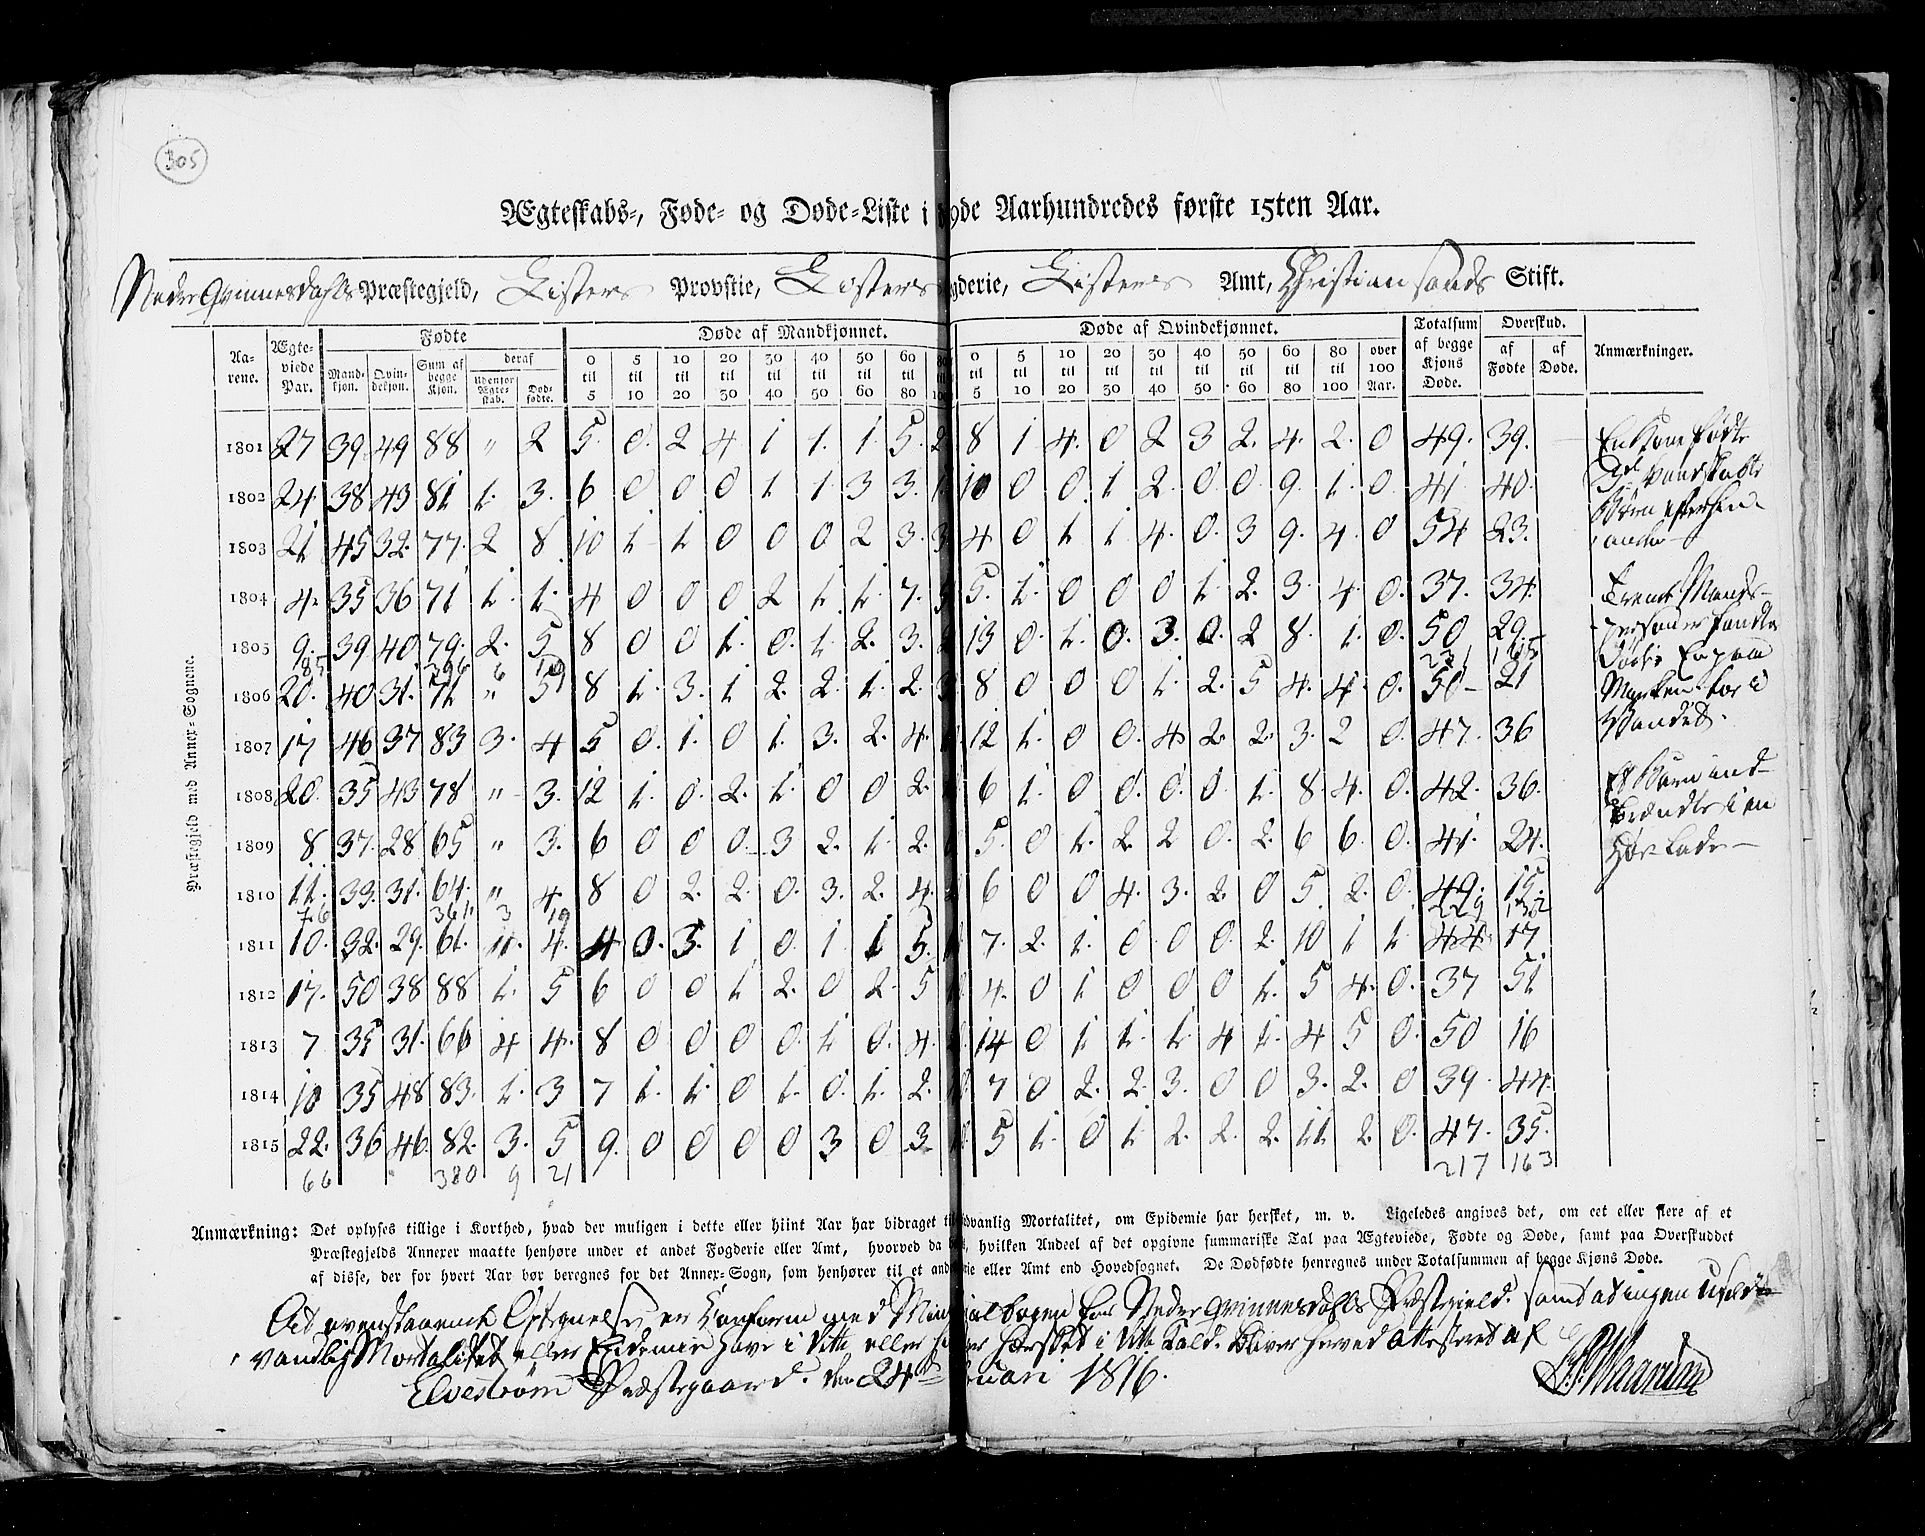 305
Ægteskabs-, Føde- og Døde-Liste i 19de Aarhundredes første 15ten Aar.
Nedre Qvinnesdahls Præstegjeld, Listers Provstie, Listers gderie, Listers Amt, Christiansands Stift.
Aarene. Ægteviede Par. Fødte Døde af Mandkjønnet. Døde af Qvindekjønnet. Totalsum af begge Kjøns Døde. Overskud. Anmærkninger.
Mandkjøn. Qvindekjøn. Sum af begge Kjøn. deraf udenfor Ægteskab. Dødfødte. 0 til 5 5 til 10 10 til 20 20 til 30 30 til 40 40 til 50 50 til 60 60 til 80 0 til 5 5 til 10 10 til 20 20 til 30 30 til 40 40 til 50 50 til 60 60 til 80 80 til 100 over 100 Aar. af Fødte af Døde.
Præstegjeld med Annex-Sognene.
1801 27 39 49 88 " 2 5. 0. 2 4 1 1. 1. 5. 2 8 1 4. 0 2 3 2. 4. 2. 0 49. 39.
1802 24 38 43 81 1. 3. 6 0 0 0 1 1. 3 3. 1 10 0 0. 1 2. 0 0 9. 1. 0 41 40.
1803 21 45 32. 77. 2 8. 10 1 1. 0 0 0 2 3. 3 4 0 1 1 4. 0. 3 9. 4. 0 54 23.
1804 4. 35 36 71 1. 1. 4 0 0 0 2 1 1. 7. 5. 1. 0 0 0 1. 2. 3. 4 0. 37. 34.
1805 9. 39 40 79. 2. 5 8 0 0 1. 0. 1. 2. 3. 13 0. 1. 0. 3. 0. 2 8. 1. 0. 50 29
85 396 6 19 231 165
1806 20. 40 31. 71 " 5 8 1. 3. 1 2. 2. 1. 2. 3 8 0 0 0 1. 2. 5 4. 4. 0. 50 21
1807 17 46 37 83 3. 4 5 0. 1. 0 1. 3. 2. 4. 12 1. 0 0. 4 2. 2. 3. 2 0. 47. 36
1808 20. 35 43 78 " 3. 12 1. 0. 2. 1. 0 0 2. 6 1. 0 0. 0. 0 1. 8. 4. 0. 42. 36.
1809 8 37. 28 65 " 3. 6 0 0 0. 3 2. 1. 2. 5 0 1. 2 2 0. 2. 6 6 0. 41. 24.
1810 11. 33. 31. 64. " 4. 8 0 2. 2. 0. 3. 2. 4. 6 0 0 4 3. 2. 0 5 2. 0. 49. 15.
76 361 3 19 229 132
1811 10. 32. 29. 61. 4. 4 0 3. 1 0. 1 1 5. 7. 2. 1. 0 0 0. 2. 10 1 1 44 17
1812 17. 50 38 88 1. 5 6 0 0 1 2. 0 2. 5 4. 0 1 0 0 0 1. 5 4. 0. 37 51
1813 7 35 31. 66 4 4. 8 0 0 0 0. 1. 0. 4. 14 0 1 1. 1. 4 1. 4 5 0. 50 16
1814 10 35 48 83. 1. 3 7 1. 1. 0 1. 0. 1. 2. 7 0 2. 2. 3. 0 0 3. 2. 0 39. 44.
1815 22. 36 46. 82. 3. 5 9. 0 0 0 0 3 0 3. 5 1. 0 1. 2. 2. 2. 11 2. 0. 47. 35.
66 380 9 21 217 163
En Kone fødte
Børn
Trende Mands-
personer fandtes
døde En paa
Marken. to i
Vandet.
Et Barn ind-
brændte i en
Høe-Lade
Anmærkning: Det oplyses tillige i Korthed, hvad der muligen i dette eller hiint Aar har bidraget til dvanlig Mortalitet, om Epidemie har hersket, m. v. Ligeledes angives det, om eet eller flere af et
Præstegjelds Annexer maatte henhøre under et andet Fogderie eller Amt, hvorved da hvilken Andeel af det opgivne summariske Tal paa Ægteviede, Fødte og Døde, samt paa Overskuddet
af disse, der for hvert Aar bør beregnes for det Annex-Sogn, som henhører til et and rie eller Amt end Hovedsognet. De Dødfødte henregnes under Totalsummen af begge Kjøns Døde.
At ovenstaaende er Conform med Min ialbogen for Nedre Qvinnesdahls Præstegield. samt at ingen
vanlig Mortalitet eller Epidemie have i dette eller hersket i dette Kald. Bliver herved attesteret af
Elvestrøm Præstegaard. den 24 uari 1816.